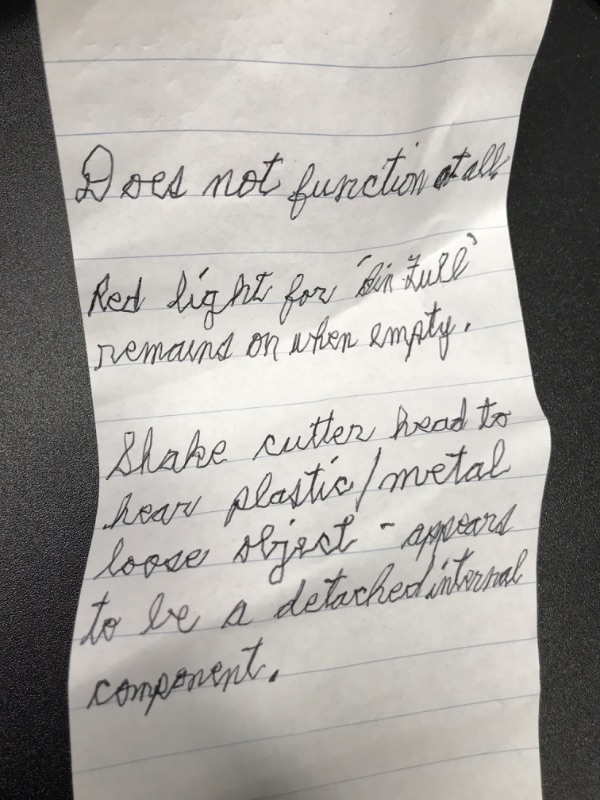 Does not function at all
Red light for 'Bin Full'
remains on when empty.
Shake cutter head to
hear plastic/metal
loose object - appears
to be a detached internal
component.